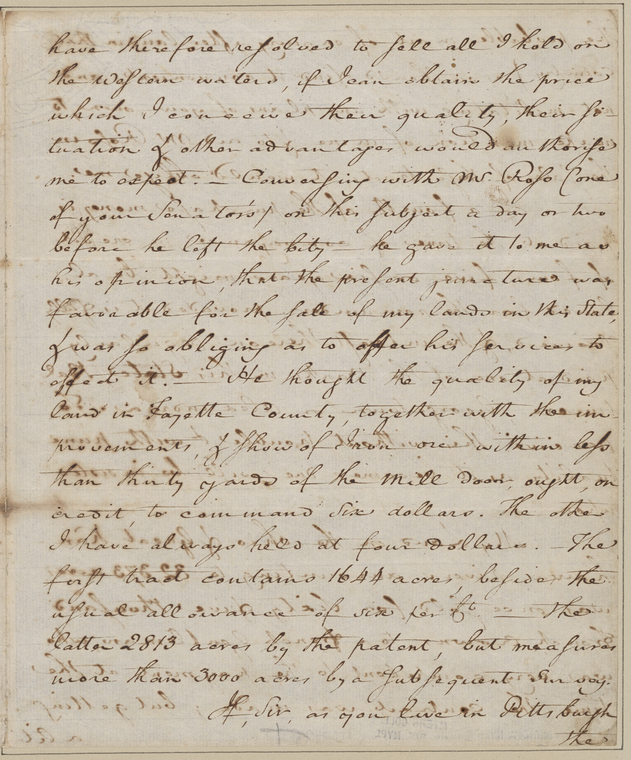 have therefore resolved to sell all I hold on
the Western waters, if I can obtain the price
which I conceive their quality, their si
tuation & other advantages would authorise
me to expect. — Conversing with Mr Ross (one
of your Senators) on this subject a day or two
before he left the City — he gave it to me as
his opinion, that the present juncture was
favorable for the sale of my lands in this State,
& was so obliging as to offer his services to
effect it. — He thought the quality of my
land in Fayette County, together with the im-
provements, & show of Iron ore within less
than thirty yards of the Mill Door, ought on
credit, to command Six dollars. The other
I have always held at four Dollars. — The
first tract contains 1644 acres, beside the
usual allowance of six per Ct — the
latter 2813 acres by the patent, but measures
more than 3000 acres by a subsequent Survey.
If, Sir, as you live in Pittsburgh
the